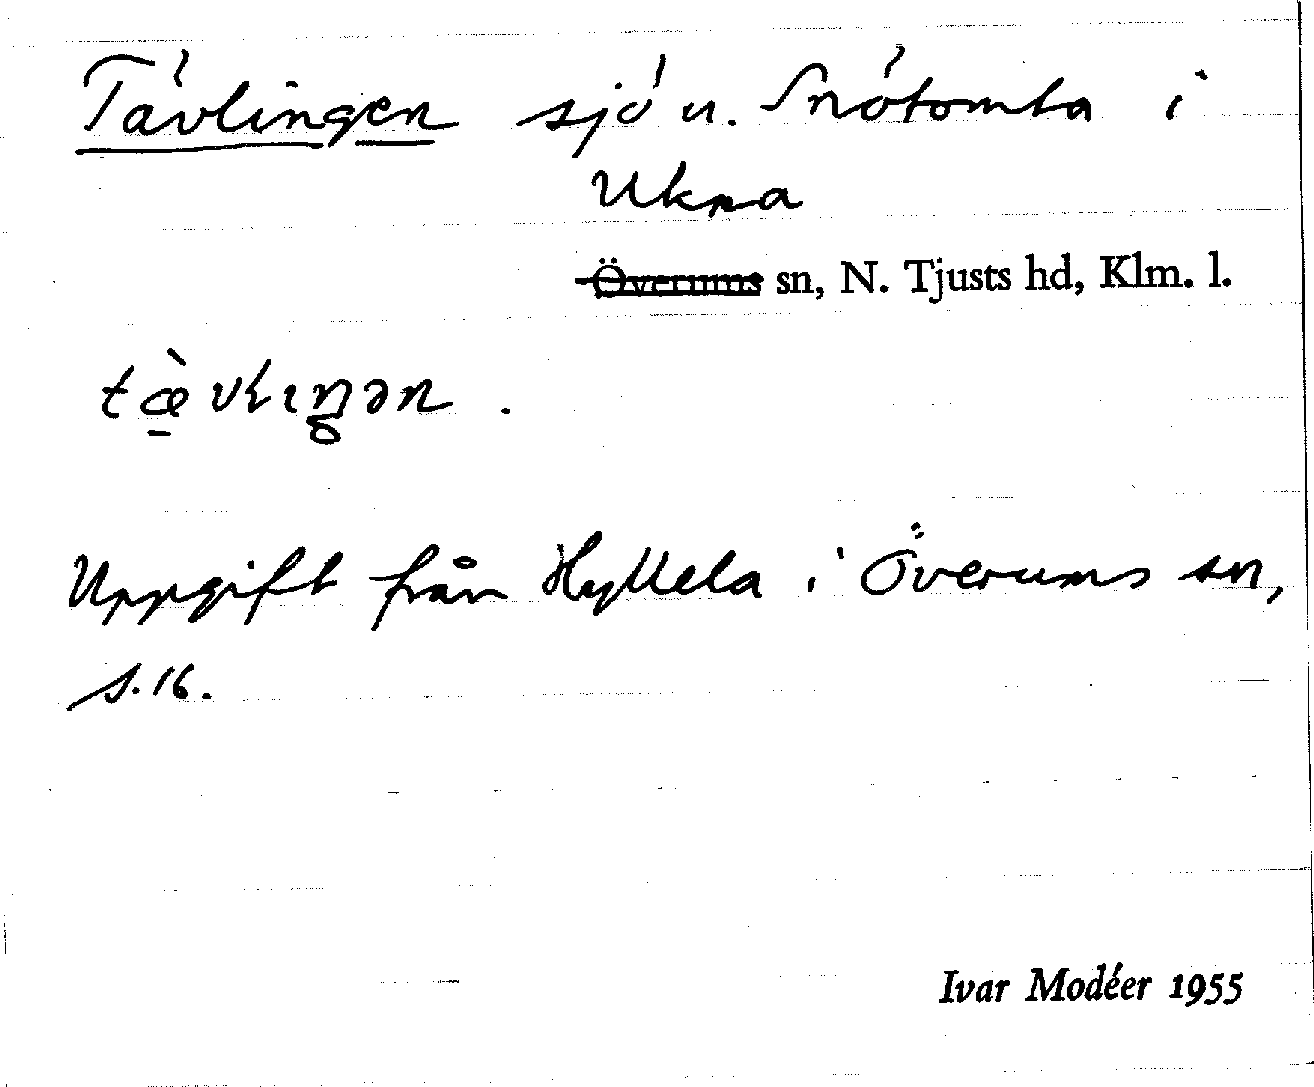 Tävlingen sjö u. Snötomta i
Ukna
Överums sn, N. Tjusts hd, Klm. l.
tæ̀vlıŋən .
Uppgift från Hyllela i Överums sn,
s. 16.
Ivar Modéer 1955